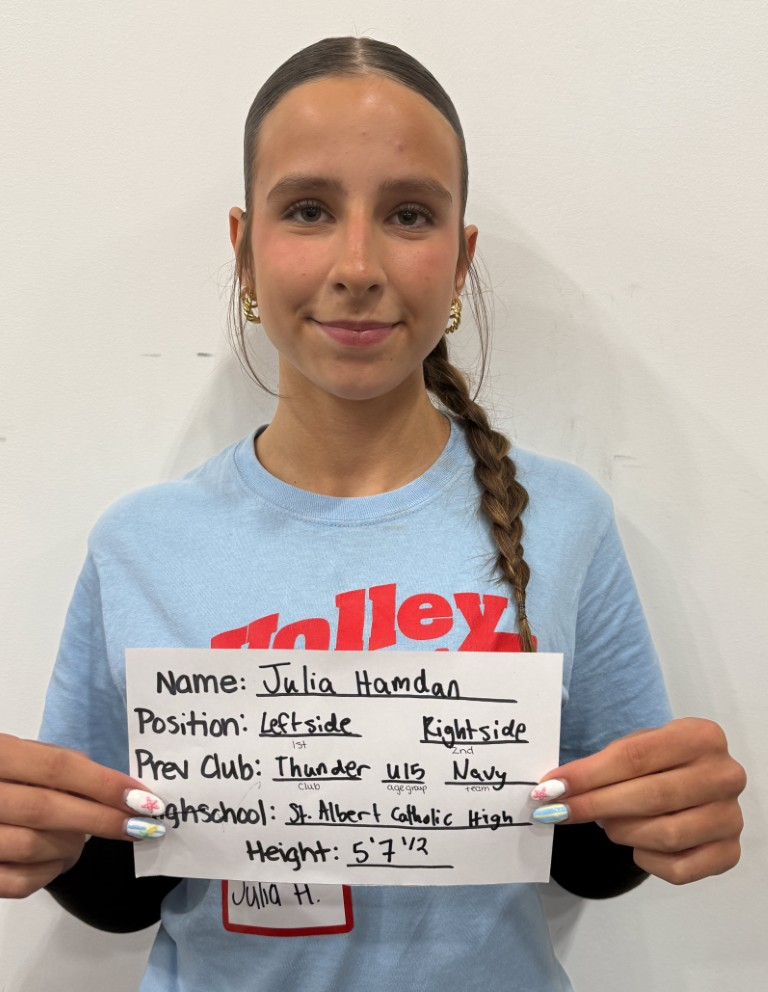 Volley
Name: Julia Hamdan
Position: Leftside Rightside
1st 2nd
Prev Club: Thunder U15 Navy
club age group team
ghschool: St. Albert Catholic High
Height: 5'7 1/2
Julia H.